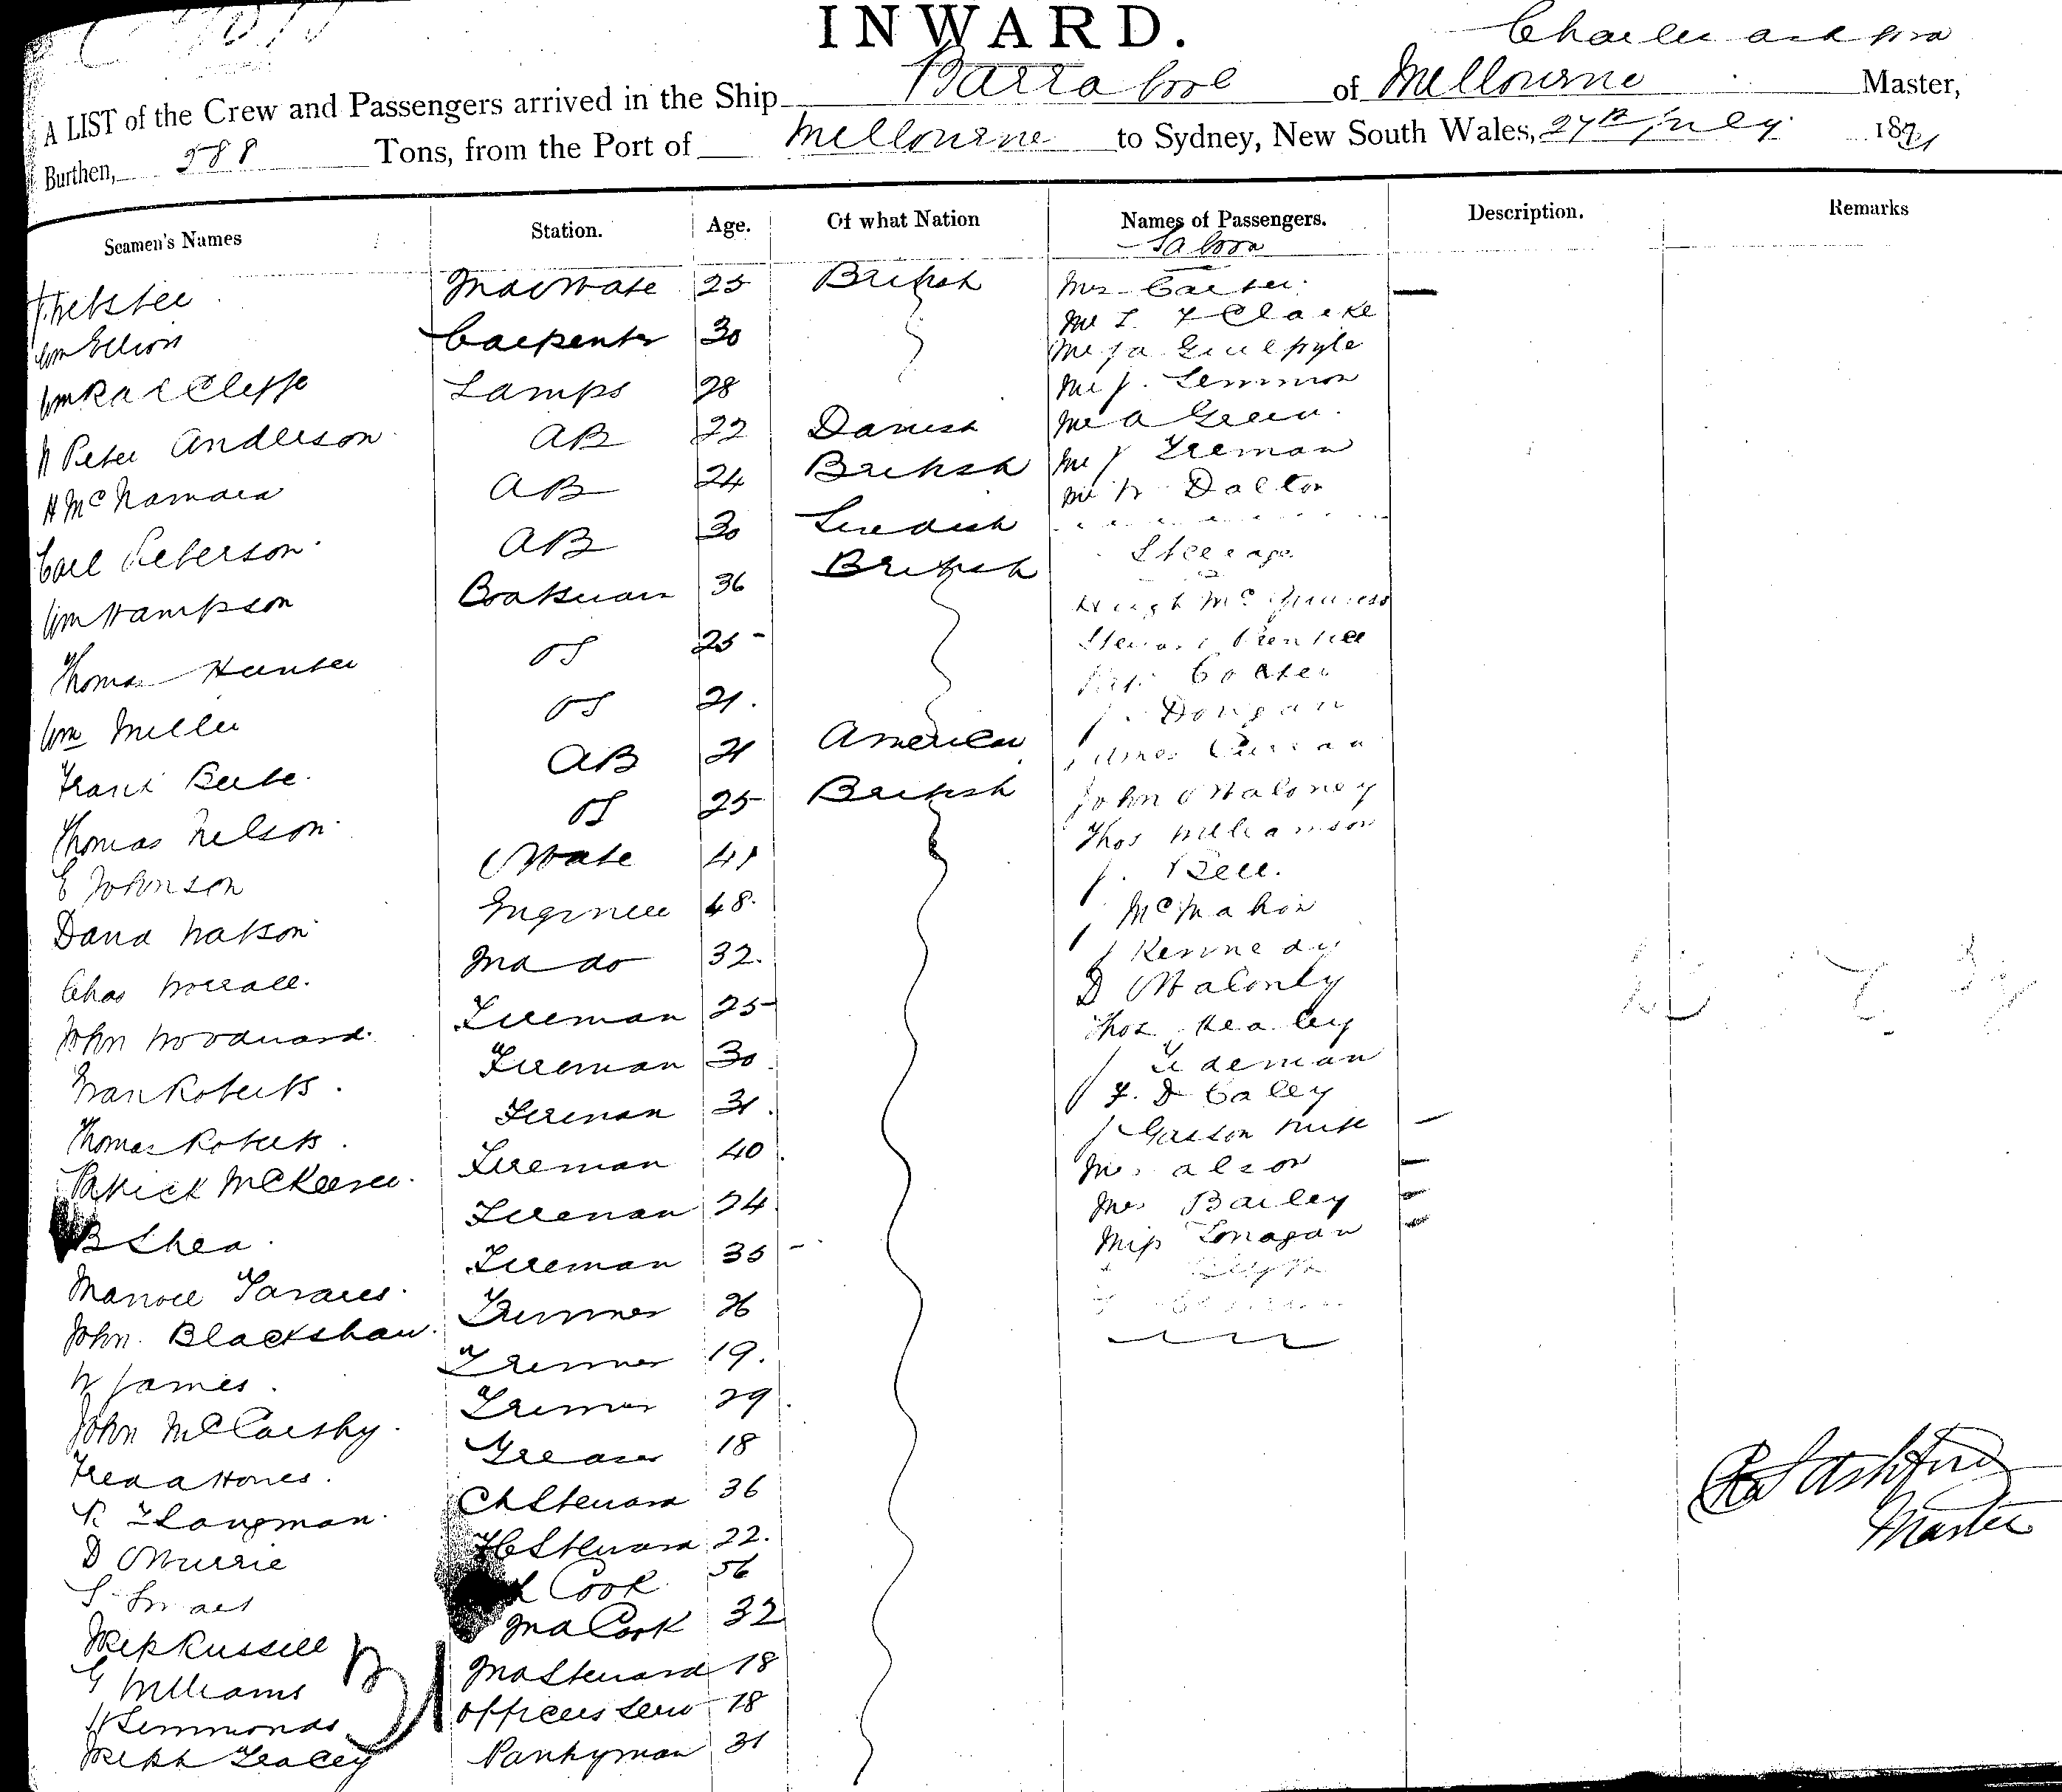 INWARD.
A LIST of the Crew and Passengers arrived in the Ship Barrabool of Melbourne Master,
Burthen, 588 Tons, from the Port of Melbourne to Sydney, New South Wales, 27th July 18
Seamen's Names Station. Age. Of what Nation Names of Passengers. Description. Remarks
Saloon
2nd Mate 25 British Mrs Carter
Wm Carpenter 30 Mr Clarke
Wm Ratcliffe Lamps 28 Mr
Mr J. Lemmon
Peter Anderson AB 22 Danish Mr A Green
H McNamara AB 24 British Mr J Freman
Mr W Dalton
Carl Peterson AB 30 Swedish
Steerage
Wm Hampson Boatswain 36 British
Hugh Mc
Thomas Hunter OS 25 Stewart Prentice
Wm Miller OS 21 Dongan
Frank Beebe AB 21 American James
Thomas Nelson OS 25 British John Maloney
Thos Williamson
E Johnson Mate 41 J. Bell
David Watson Engineer 48 McMahon
Chas Worrall 2nd do 32 J Kennedy
D Maloney
John Woodward Fireman 25 Thos Healey
Roberts Fireman 30 J Tideman
F. D Caley
Thomas Roberts Fireman 31 J Gasson Wife
Patrick Fireman 40 Mrs Alson
B Shea Fireman 24 Mrs Bailey
Miss Lonagan
Manoel Tavares Fireman 35
John Blackshaw Trimmer 26
W James Trimmer 19
John McCarthy Trimmer 29
Fred Greaser 18
Langman Ch Steward 36
D Murrie Steward 22
S Cook 56
Joseph Russell 2nd Cook 32
G Williams 2nd Steward 18
H Simmonds Officers Serv 18
Joseph Tracey Pantryman 31
31
Ashford
Master